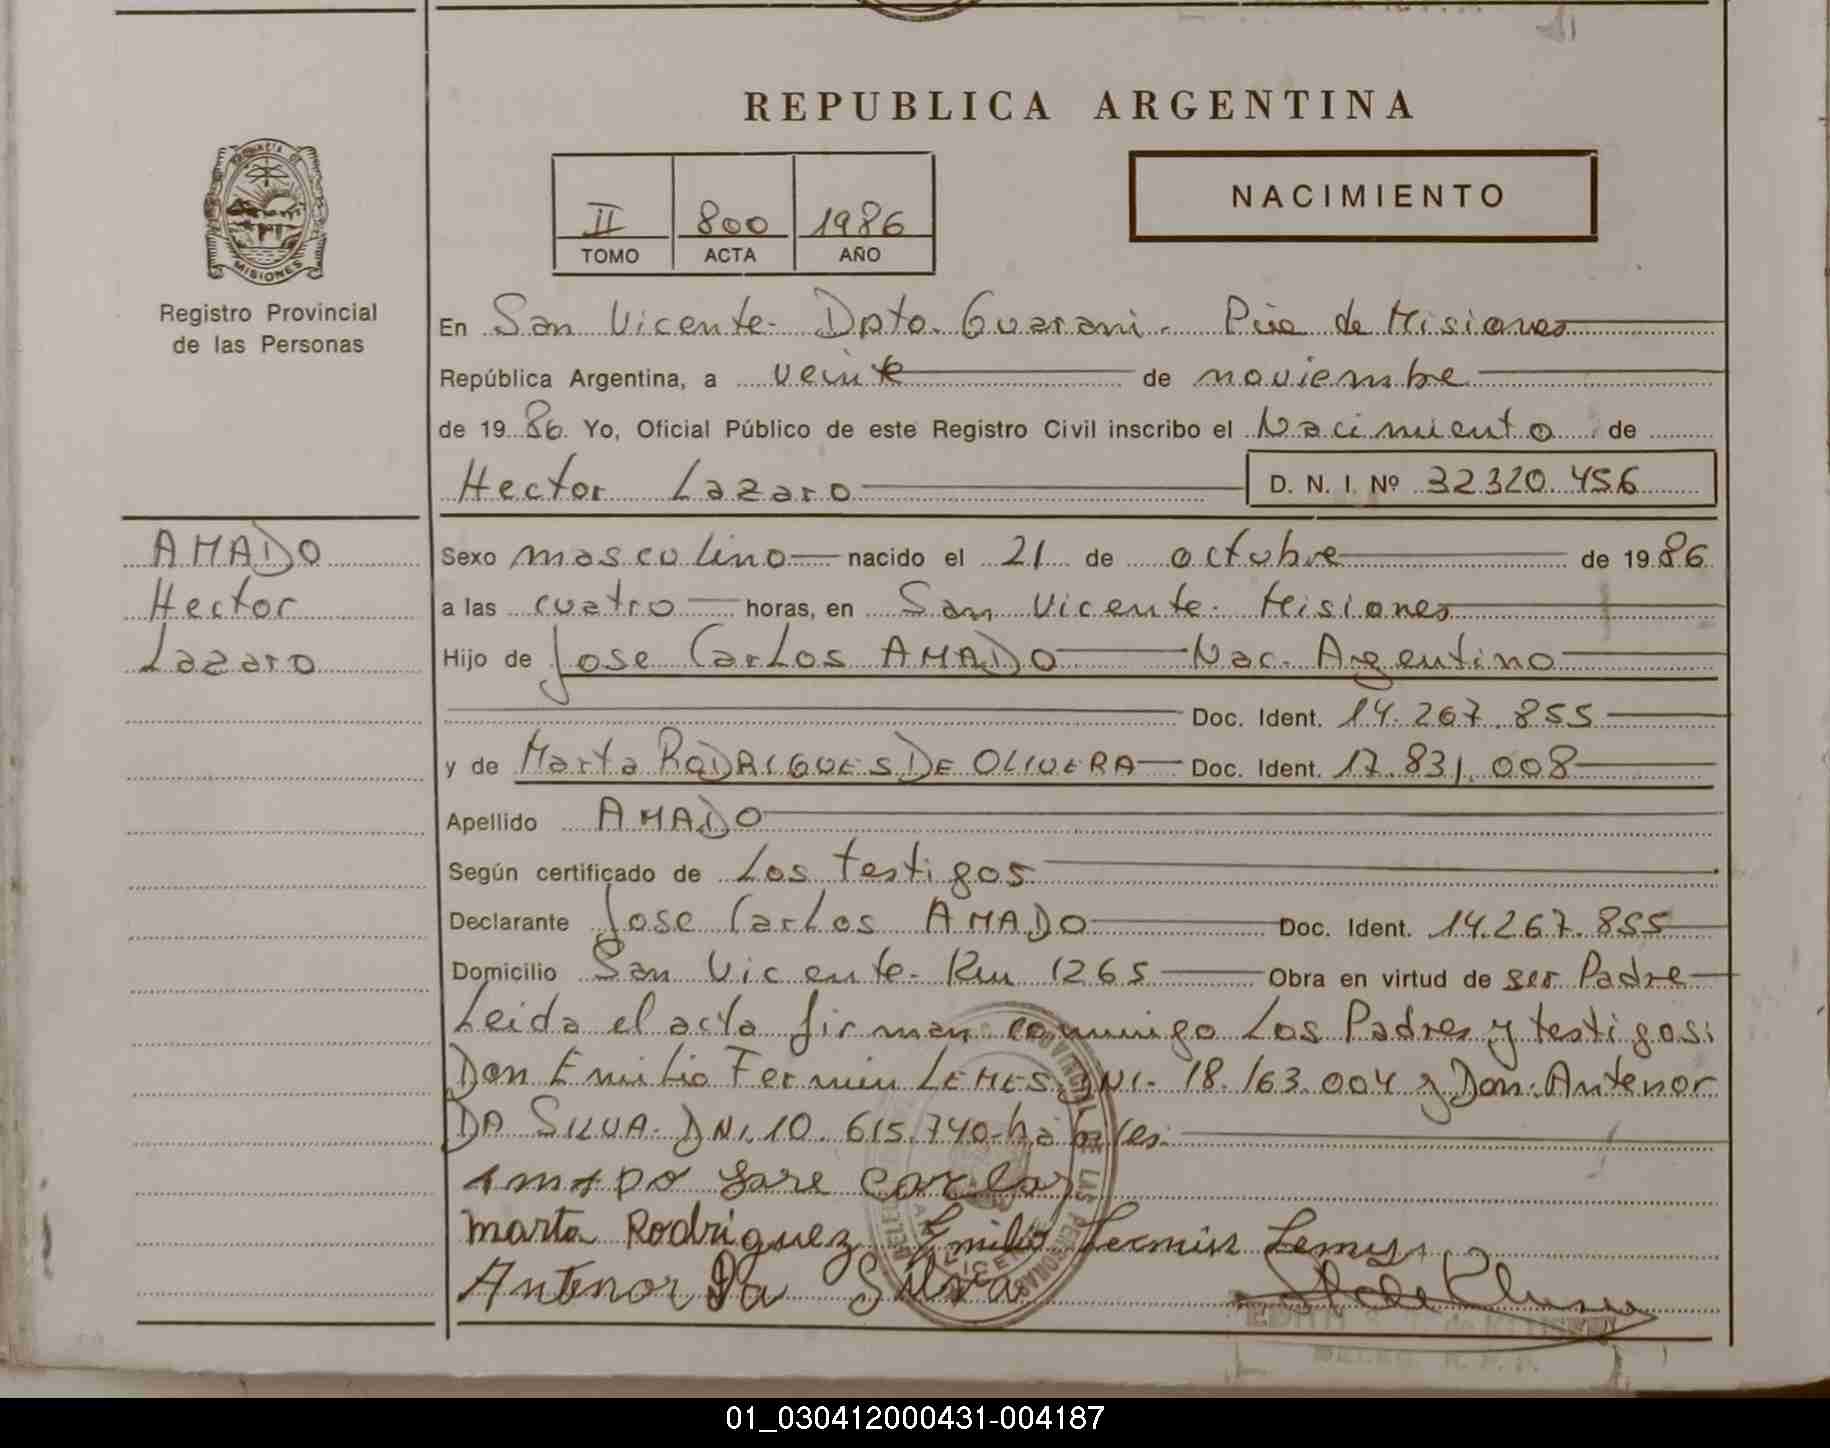 REPUBLICA ARGENTINA
NACIMIENTO
II 800 1986
TOMO ACTA AÑO
PROVINCIA DE MISIONES
Registro Provincial
de las Personas
En San Vicente - Dpto. Guarani - Pcia de Misiones
República Argentina, a veinte de noviembre
de 1986 Yo, Oficial Público de este Registro Civil inscribo el Nacimiento de
Hector Lazaro D. N. I. Nº 32320.456
AMADO
Hector
Lazaro
Sexo masculino nacido el 21 de octubre de 1986
a las cuatro horas, en San Vicente - Misiones
Hijo de Jose Carlos AMADO Nac. Argentino
Doc. Ident. 14.267.855
y de Marta RODRIGUES DE OLIVERA Doc. Ident. 17.831.008
Apellido AMADO
Según certificado de Los testigos
Declarante Jose Carlos AMADO Doc. Ident. 14.267.855
Domicilio San Vicente - Km 1265 Obra en virtud de ser Padre
Leida el acta firman conmigo Los Padres y testigos:
Don Emilio Fermin LEMES DNI - 18.163.004 y Don Antenor
DA SILVA - DNI. 10.615.740 - hábiles.
AMADO Jose Carlos
Marta Rodriguez Emilio Fermin Lemes
Antenor Da Silva
01_030412000431-004187